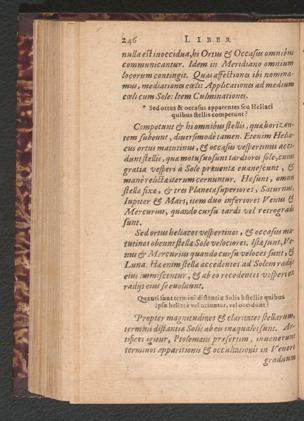 246 LIBER
nulla est inocciduæ, hi Ortus & Occasus omnibus
communicantur. Idem in Meridiano omnium
locorum contingit. Quas affectiones ibi nomina-
mus, mediationes cœli: Applicationes ad medium
cœli cum Sole: Item Culminationes.
* Sed ortus & occasus apparentes seu Heliaci
quibus stellis competunt?
Competunt & hi omnibus stellis, quæ horizon-
tem subeunt, diversimodè tamen. Etenim Helia-
cus ortus matutinus, & occasus vespertinus acci-
dunt stellis, quæ motu suo sunt tardiores sole, cuius
gratia vesperi à Sole præuenta euanescunt, &
manè relictæ iterum cernuntur. Hæ sunt, omnes
stellæ fixæ, & tres Planetæ superiores, Saturnus,
Iupiter & Mars, item duo inferiores Venus &
Mercurius, quando cursu tardi vel retrogradi
sunt.
Sed ortus heliacos vespertinos, & occasus ma-
tutinos obeunt stellæ Sole velociores. Istæ sunt, Ve-
nus & Mercurius quando cursu veloces sunt, &
Luna. Hæ enim stellæ accedentes ad Solem radijs
eius immiscentur, & ab eo recedentes vesperi è
radijs eius se euoluunt.
Quanti sunt termini distantiæ Solis à stellis quibus
ipsæ heliacè vel oriuntur, vel occidunt?
Propter magnitudines & claritates stellarum,
termini distantiæ Solis ab eis inæquales sunt. Ar-
tifices igitur, Ptolemæus præsertim, inuenerunt
terminos apparitionis & occultationis in Veneri
graduum